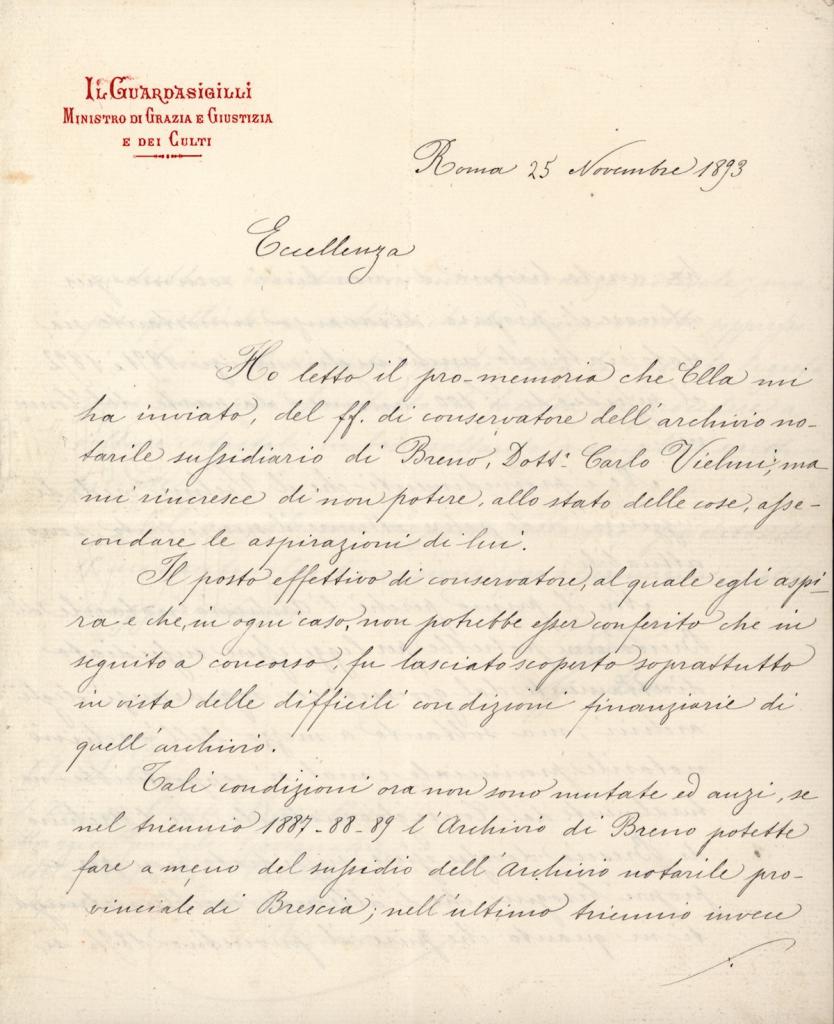 IL GUARDASIGILLI
MINISTRO DI GRAZIA E GIUSTIZIA
E DEI CULTI
Roma 25 Novembre 1893
Eccellenza
Ho letto il pro-memoria che Ella mi
ha inviato, del ff. di conservatore dell'archivio no-
tarile sussidiario di Breno, Dott. Carlo Vielmi; ma
mi rincresce di non potere, allo stato delle cose, asse-
condare le aspirazioni di lui.
Il posto effettivo di conservatore, al quale egli aspi-
ra e che, in ogni caso, non potrebbe esser conferito che in
seguito a concorso, fu lasciato scoperto soprattutto
in vista delle difficili condizioni finanziarie di
quell'archivio.
Tali condizioni ora non sono mutate ed anzi, se
nel triennio 1887-88-89 l'Archivio di Breno potette
fare a meno del sussidio dell'Archivio notarile pro-
vinciale di Brescia; nell'ultimo triennio invece